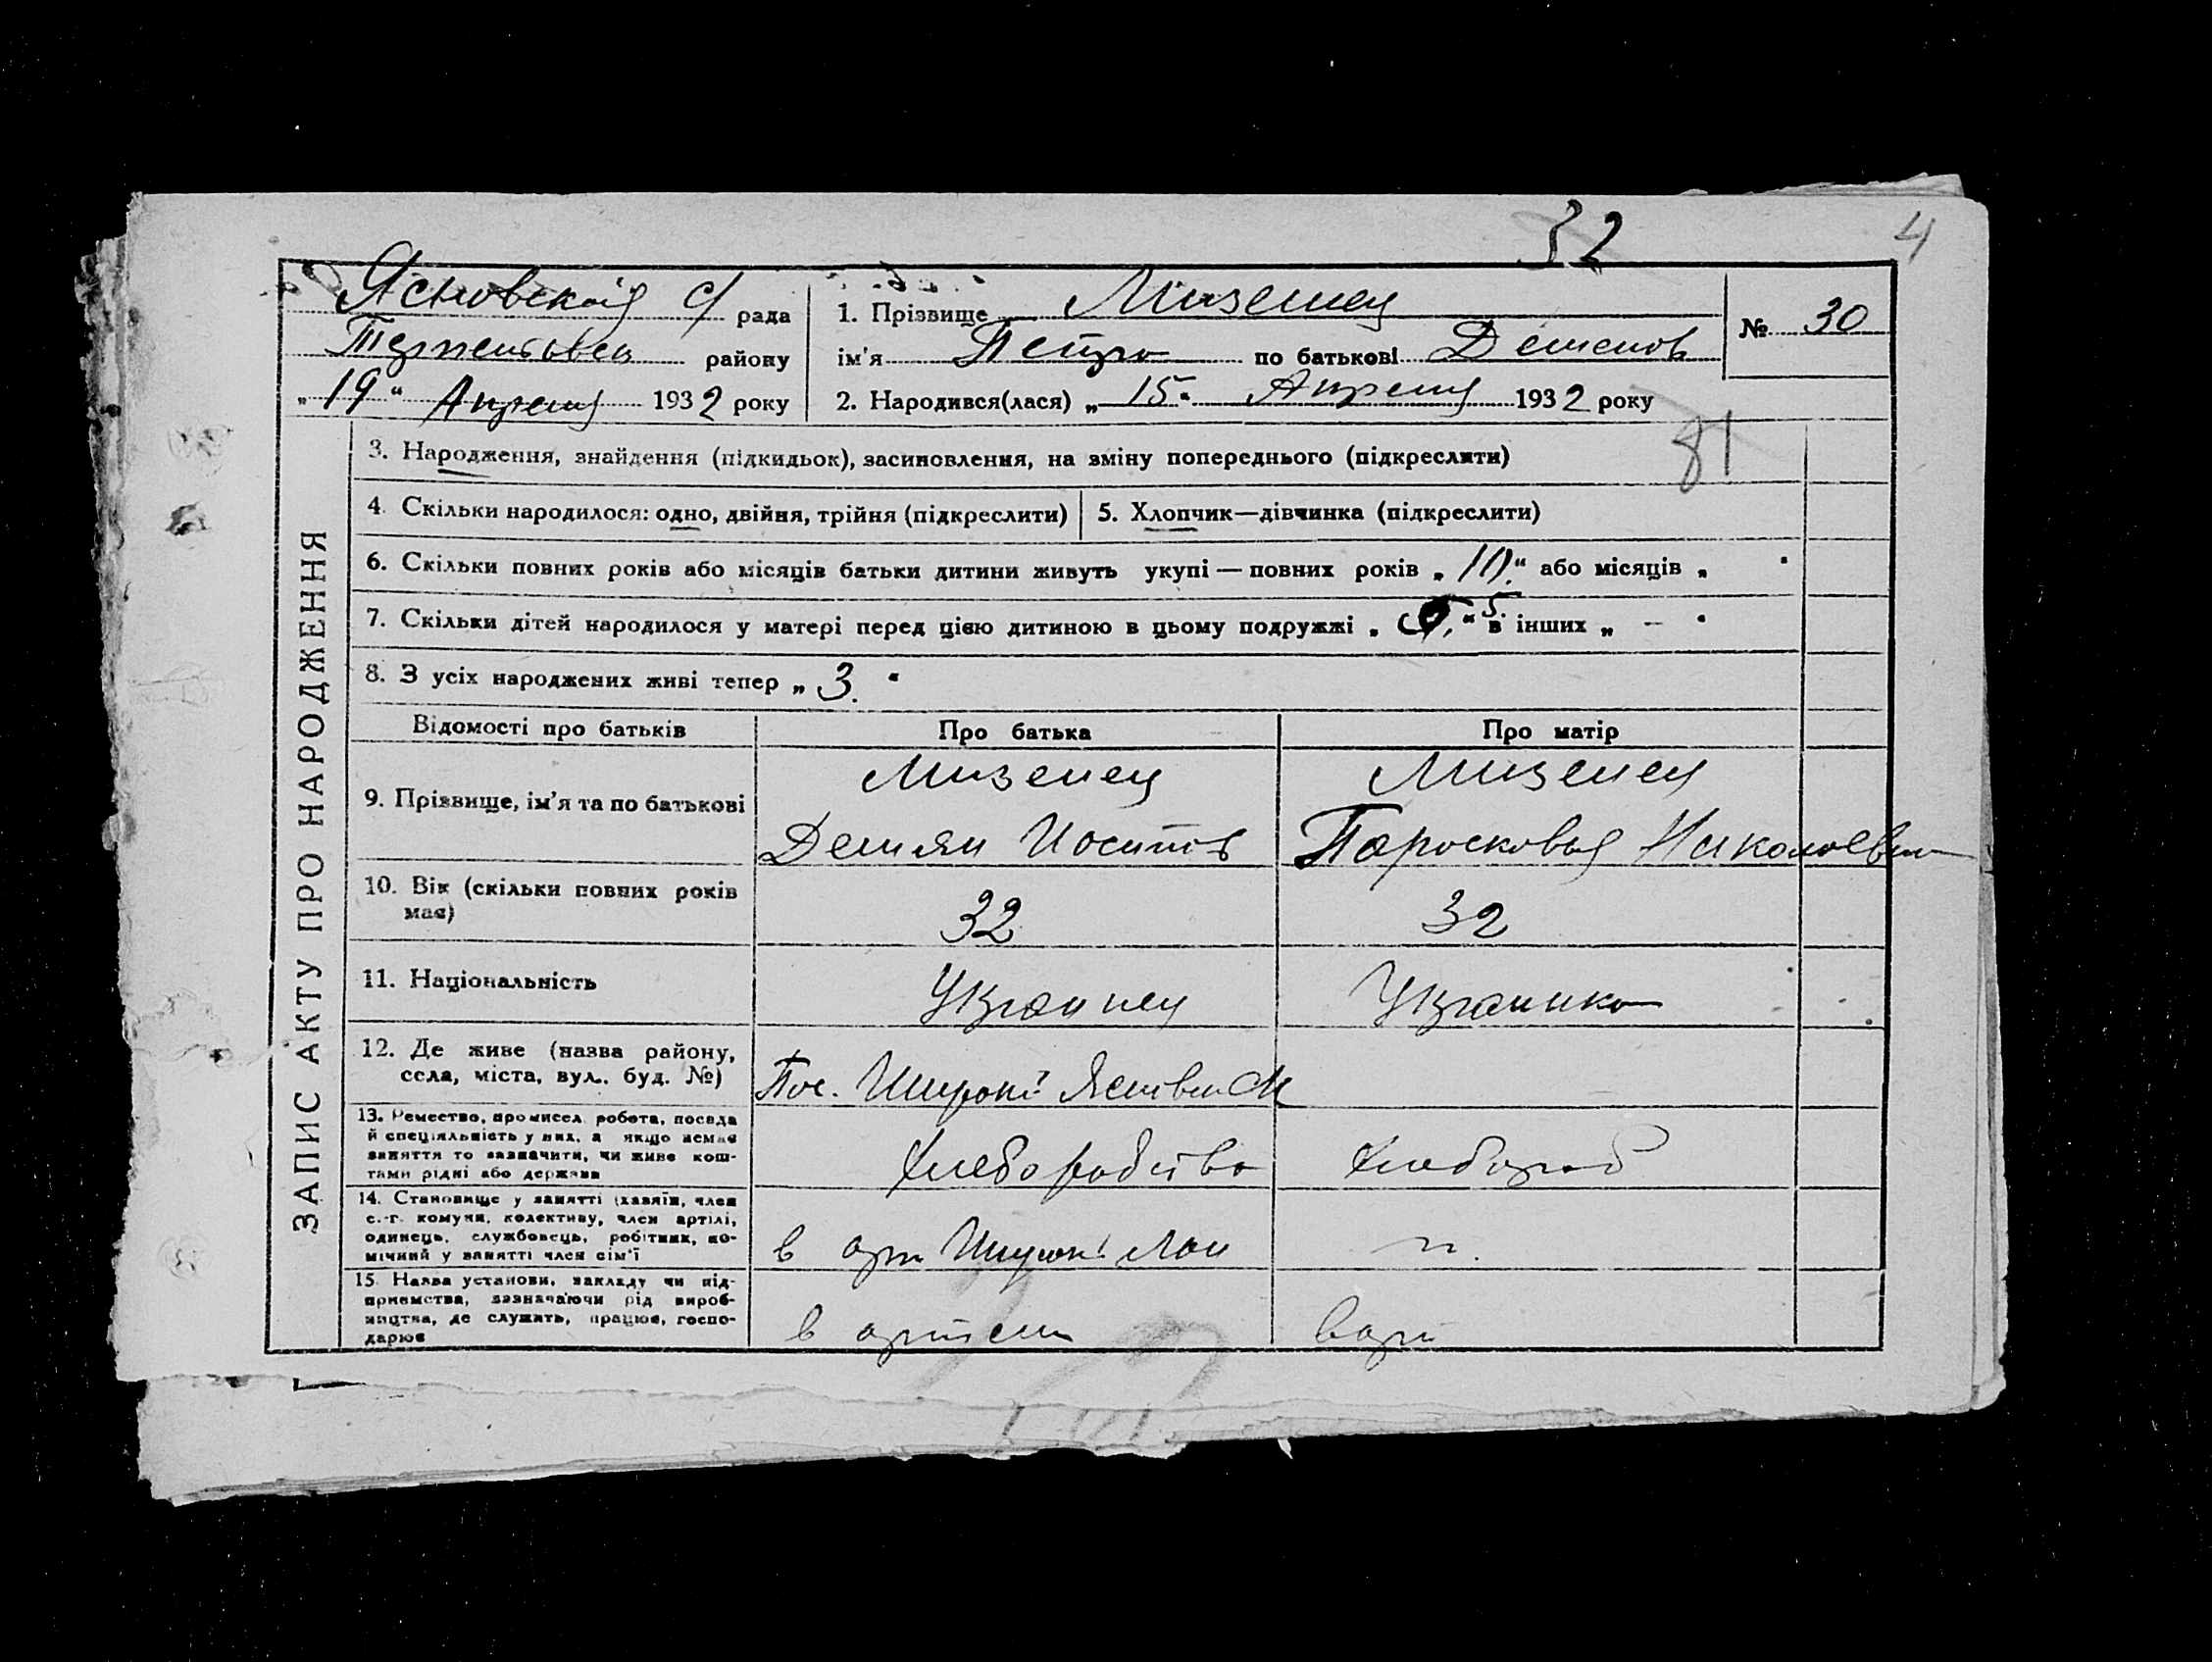 32
4
Ясиновской с/ рада
району
„19“ Апреля 1932 року
1. Прізвище Мизенец
ім'я Петро по батькові Демьянов
№ 30
2. Народився(лася) „15“ Апреля 1932 року
81
ЗАПИС АКТУ ПРО НАРОДЖЕННЯ
3. Народження, знайдення (підкидьок), засиновлення, на зміну попереднього (підкреслити)
4. Скільки народилося: одно, двійня, трійня (підкреслити)
5. Хлопчик—дівчинка (підкреслити)
6. Скільки повних років або місяців батьки дитини живуть укупі — повних років „10.“ або місяців „ “
7. Скільки дітей народилося у матері перед цією дитиною в цьому подружжі „ 5. “ в інших „ – “
8. З усіх народжених живі тепер „3.“
Відомості про батьків
Про батька
Про матір
9. Прізвище, ім'я та по батькові
Мизенец
Демян Иосипов
Мизенец
Паросковья Николаевна
10. Вік (скільки повних років
має)
32
32
11. Національність
Украинец
Украинка
12. Де живе (назва району,
села, міста, вул., буд. №)
Пос. Широкі
13. Ремество, промисел, робота, посада
й спеціяльність у них, а якщо немає
заняття то зазначити, чи живе кош-
тами рідні або держави
Хлеборобство
Хлебороб
14. Становище у занятті (хазяїн, член
с.-г. комуни, колективу, член артілі,
одинець, службовець, робітник, по-
мічний у занятті член сім'ї
в арт Широкі Лан
15. Назва установи, закладу чи під-
приємства, зазначаючи рід вироб-
ництва, де служить, працює, госпо-
дарює
в артели
в арт